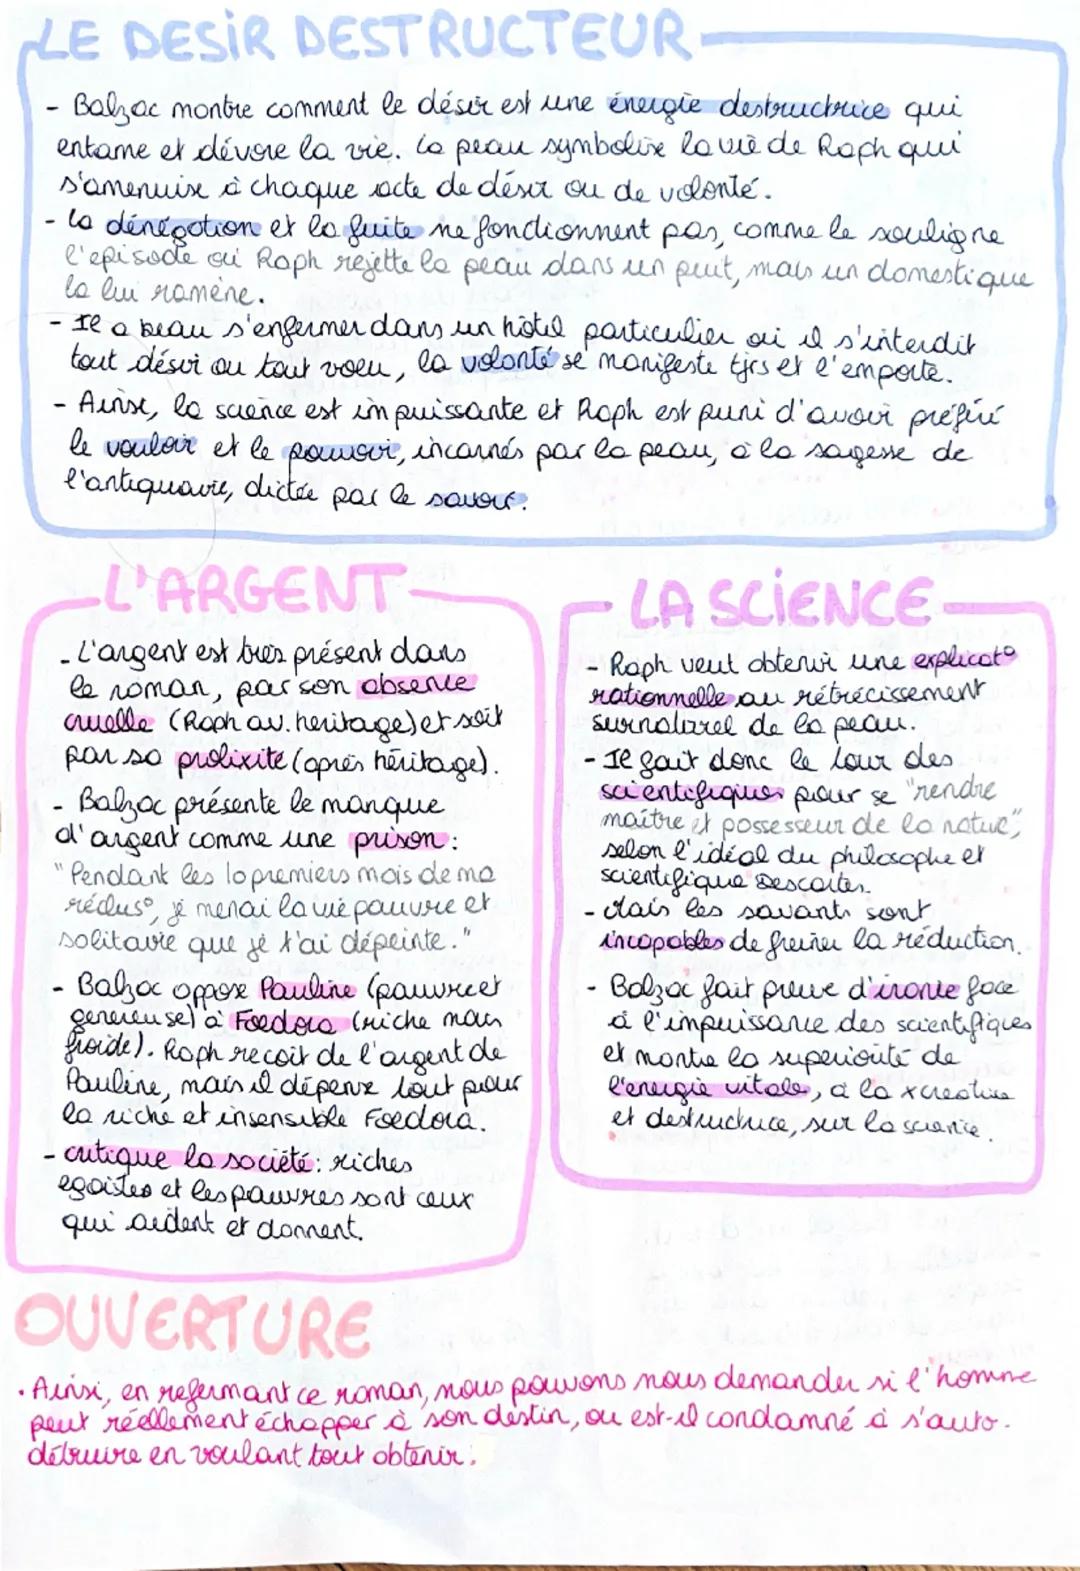 LE DESIR DESTRUCTEUR
- Balzac montre comment le désir est une énergie destructrice qui
entame et dévore la vie. La peau symbolise la vie de Raph qui
s'amenuise à chaque acte de désir ou de volonté.
- La dénégation et la fuite ne fonctionnent pas, comme le souligne
l'episode où Raph rejette la peau dans un puit, mais un domestique
la lui ramène.
- Il a beau s'enfermer dans un hôtel particulier où il s'interdit
tout désir ou tout voeu, la volonté se manifeste tjrs et l'emporte.
- Ainsi, la science est impuissante et Raph est puni d'avoir préféré
le vouloir et le pouvoir, incarnés par la peau, à la sagesse de
l'antiquaire, dictée par le savoir.
L'ARGENT
- L'argent est très présent dans
le roman, par son absence
cruelle (Raph av. heritage) et soit
par sa prolixité (après héritage).
- Balzac présente le manque
d'argent comme une prison :
"Pendant les 10 premiers mois de ma
réclus°, je menai la vie pauvre et
solitaire que je t'ai dépeinte."
- Balzac oppose Pauline (pauvre et
genereuse) à Foedora (riche mais
froide). Raph reçoit de l'argent de
Pauline, mais il dépense tout pour
la riche et insensible Foedora.
- critique la société : riches
egoïstes et les pauvres sont ceux
qui aident et donnent.
LA SCIENCE
- Raph veut obtenir une explicat°
rationnelle au rétrécissement
surnaturel de la peau.
- Il fait donc le tour des
scientifiques pour se "rendre
maître et possesseur de la nature",
selon l'idéal du philosophe et
scientifique Descartes.
- Mais les savants sont
incapables de freiner la réduction.
- Balzac fait preuve d'ironie face
à l'impuissance des scientifiques
et montre la supériorité de
l'energie vitale, à la x creatrice
et destructrice, sur la science.
OUVERTURE
• Ainsi, en refermant ce roman, nous pouvons nous demander si l'homme
peut réellement échapper à son destin, ou est-il condamné à s'auto-
détruire en voulant tout obtenir.